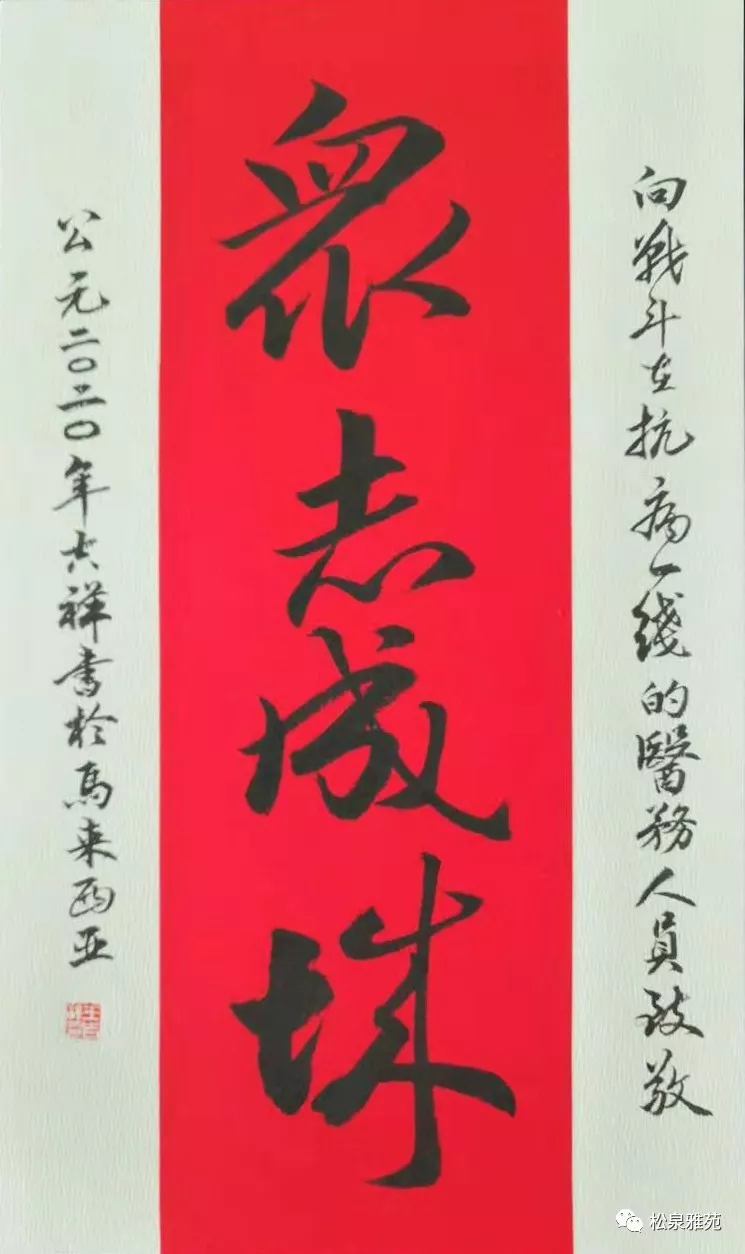 向戰斗在抗病一綫的醫務人員致敬
衆志成城
公元二〇二〇年吉祥書於馬来西亚
松泉雅苑